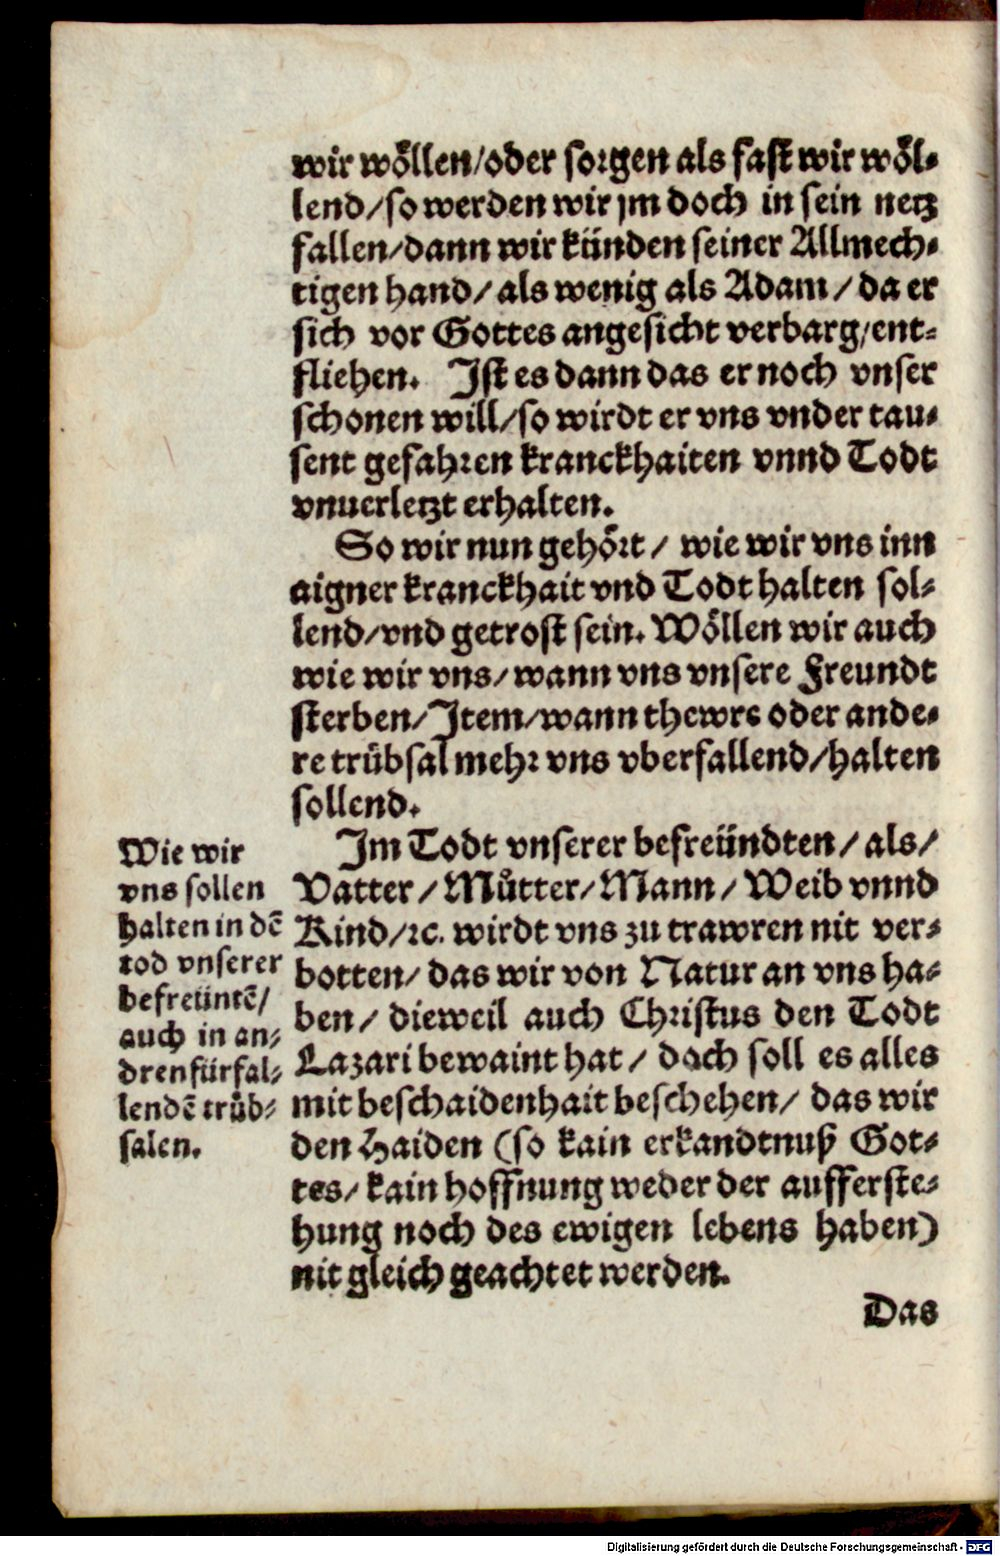 wir wöllen/oder sorgen als fast wir wöl-
lend/so werden wir jm doch in sein netz
fallen/dann wir künden seiner Allmech-
tigen hand/ als wenig als Adam/ da er
sich vor Gottes angesicht verbarg/ent-
fliehen. Ist es dann das er noch vnser
schonen will/so wirdt er vns vnder tau-
sent gefahren kranckhaiten vnnd Todt
vnuerletzt erhalten.
So wir nun gehört/ wie wir vns inn
aigner kranckhait vnd Todt halten sol-
lend/vnd getrost sein. Wöllen wir auch
wie wir vns/wann vns vnsere Freundt
sterben/Item/wann thewre oder ande-
re trübsal mehr vns vberfallend/halten
sollend.
Im Todt vnserer befreündten/ als/
Vatter/ Můtter/Mann/ Weib vnnd
Kind/ꝛc. wirdt vns zu trawren nit ver-
botten/ das wir von Natur an vns ha-
ben/ dieweil auch Christus den Todt
Lazari bewaint hat/ doch soll es alles
mit beschaidenhait beschehen/ das wir
den Haiden (so kain erkandtnuß Got-
tes/ kain hoffnung weder der aufferste-
hung noch des ewigen lebens haben)
nit gleich geachtet werden.
Das
Wie wir
vns sollen
halten in dē
tod vnserer
befreüntē/
auch in an-
dren fürfal-
lendē trüb-
salen.
Digitalisierung gefördert durch die Deutsche Forschungsgemeinschaft - DFG